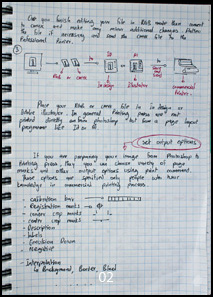 Once you finish editing your file in RGB mode then convert
to CMYK and make any minor additional changes
the file if necessary and save the CMYK file to the
Professional Printer.
③
Id
RGB or CMYK
In Design
Ai
Illustrator
Place your RGB or CMYK file in In design or
Illustrator. In general Printing press
printed directly from photoshop but have a page layout
programme like Id or Ai
Set output options
If you are preparing your image from Photoshop to
Printing press, they you can choose variety of page
marks and other output options using print command.
These options are specified only people who have
knowledge in commercial printing process.
- Calibration bar →
- Registration marks →
- corner crop marks →
- center crop marks →
- Description
- labels
- Emulsion Down
- Negative
- Interpolation
to Background, Border, Bleed
02